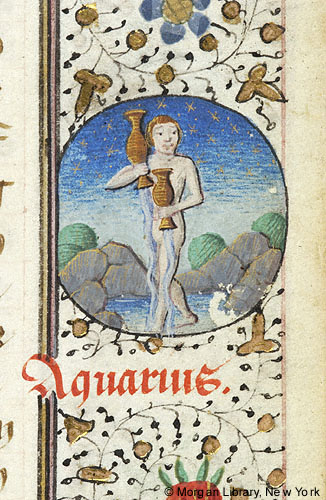 Aquarius.
© Morgan Library, New York